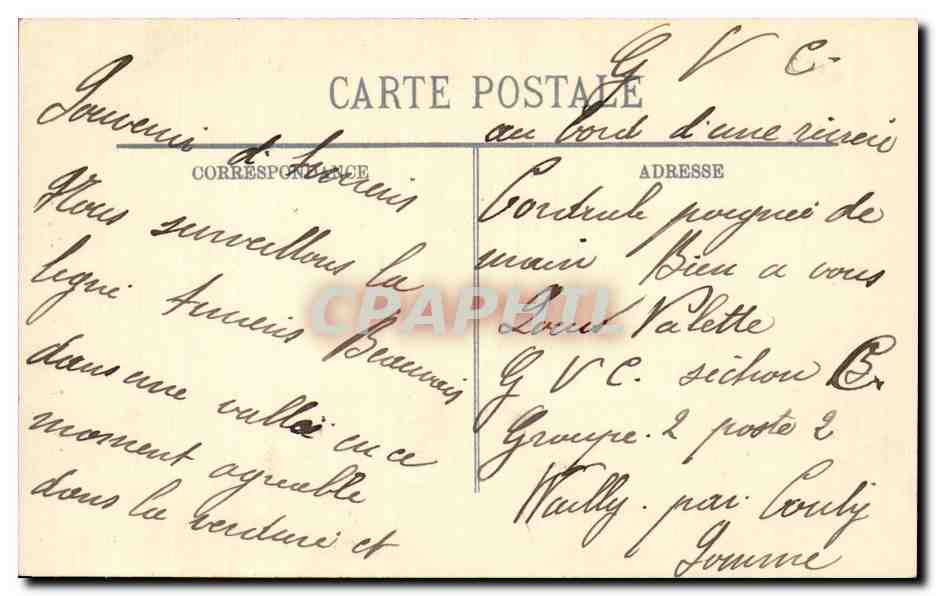 G V C.
CARTE POSTALE
CORRESPONDANCE
ADRESSE
Souvenir d'Amiens
Nous surveillons la
ligne Amiens Beauvais
dans une vallée en ce
moment agréable
dans la verdure et
au bord d'une rivière
Cordiale poignée de
main Bien a vous
Louis Valette
G V C. section B.
Groupe. 2 poste 2
Wailly. par. Conty
Somme
CPAPHIL